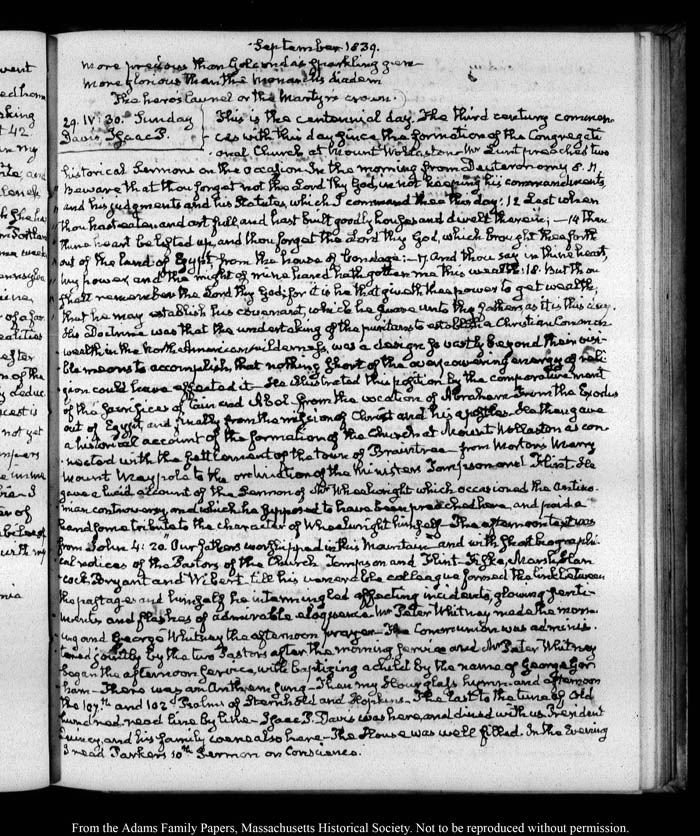 September 1839.
more precious than Golconda's sparkling gem
more glorious than the monarch's diadem
The hero's laurel or the Martyr's crown.
29. IV: 30. Sunday
Davis Isaac P.
This is the centennial day. The third century commen-
ces with this day since the formation of the Congregati-
onal Church at Mount Wollaston. Mr Lunt preached two
historical Sermons on the occasion. In the morning from Deuteronomy 8. 11.
Beware that thou forget not the Lord thy God, in not keeping his commandments
and his judgments and his Statutes, which I command thee this day: 12 Lest when
thou hast eaten and art full and hast built goodly houses and dwelt therein; — 14 Then
thine heart be lifted up, and thou forget the Lord thy God, which brought thee forth
out of the land of Egypt, from the house of bondage: — 17. And thou say in thine heart,
my power and the might of mine hand hath gotten me this wealth: 18. But thou
shalt remember the Lord thy God; for it is he that giveth thee power to get wealth,
that he may establish his covenant, which he sware unto thy fathers as it is this day.
His Doctrine was that the undertaking of the puritans to establish a Christian Common-
wealth in the North American wilderness, was a design so vastly beyond their visi-
ble means to accomplish, that nothing short of the overpowering energy of reli-
gion could have effected it — He illustrated this position by the comparative merit
of the sacrifices of Cain and Abel. from the vocation of Abraham. From the Exodus
out of Egypt and finally from the mission of Christ and his apostles. He then gave
a historical account of the formation of the Church at Mount Wollaston as con-
nected with the settlement of the town of Braintree — from Morton's Merry
Mount Maypole to the ordination of the Ministers Tompson and Flint. He
gave a lucid account of the Sermon of Mr Wheelwright which occasioned the Antino-
mian controversy, and which he supposed to have been preached here, and paid a
handsome tribute to the character of Wheelwright himself. The afternoon text was
from John 4: 20. "Our fathers worshipped in this Mountain" and with short biographi-
cal notices of the Pastors of the Church Tompson and Flint — Fiske, Marsh, Han-
cock, Bryant and Wibert, till his venerable colleague formed the link between
the past ages and himself he intermingled affecting incidents, glowing senti-
ments and flashes of admirable eloquence. Mr Peter Whitney made the morn-
ing and George Whitney the afternoon prayer — The Communion was adminis-
tered jointly by the two Pastors after the morning service and Mr Peter Whitney
began the afternoon service, with baptizing a child by the name of George Gor-
ham — There was an Anthem sung — Then my Hour glass hymn — and afternoon
the 107.th and 102.d Psalms of Sternhold and Hopkins — The last to the tune of old
hundred, read line by line — Isaac P. Davis was here, and dined with us. President
Quincy, and his family were also here — The House was well filled. In the Evening
I read Parker's 10th Sermon on Conscience.
From the Adams Family Papers, Massachusetts Historical Society. Not to be reproduced without permission.